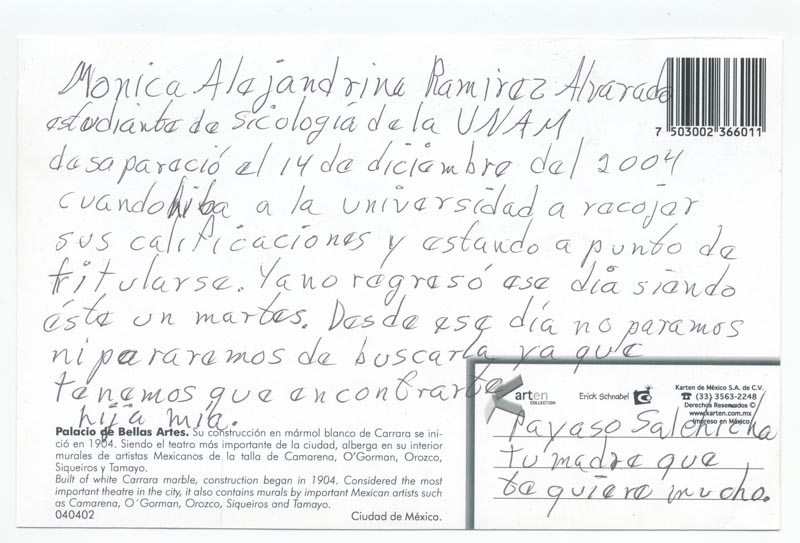 Monica Alejandrina Ramirez Alvarado
estudiante de Sicología de la UNAM
desapareció el 14 de diciembre del 2004
cuando hiba a la universidad a recojer
sus calificaciones y estando a punto de
titularse. Ya no regresó ese día siendo
éste un martes. Desde ese día no paramos
ni pararemos de buscarla ya que
tenemos que encontrarte
hija mía.
7 503002 366011
Palacio de Bellas Artes. Su construcción en mármol blanco de Carrara se ini-
ció en 1904. Siendo el teatro más importante de la ciudad, alberga en su interior
murales de artistas Mexicanos de la talla de Camarena, O'Gorman, Orozco,
Siqueiros y Tamayo.
Built of white Carrara marble, construction began in 1904. Considered the most
important theatre in the city, it also contains murals by important Mexican artists such
as Camarena, O'Gorman, Orozco, Siqueiros and Tamayo.
040402 Ciudad de México.
Karten
COLLECTION
Erick Schnabel
Karten de México S.A. de C.V.
☎ (33) 3563-2248
Derechos Reservados ©
www.karten.com.mx
Impreso en México
Payaso Salchicha
tu madre que
te quiere mucho.